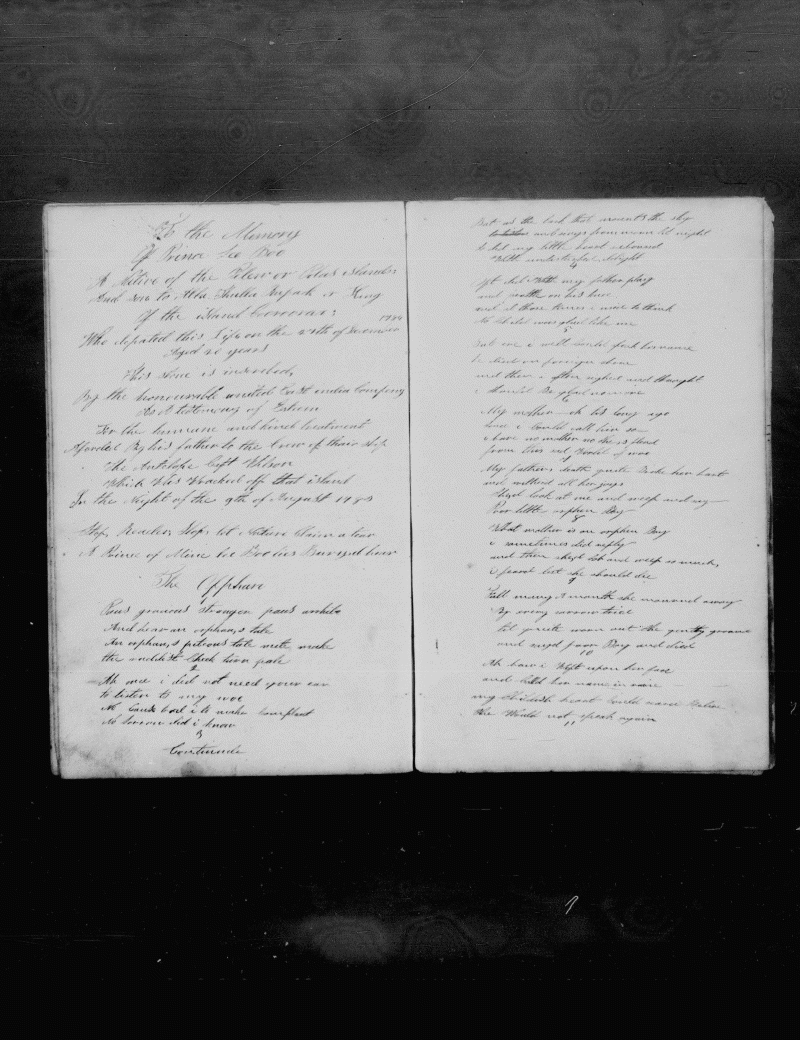 To the Memory
Of Prince Lee Boo
A Native of the Pelew or Palas islands
And son to Abba Thulle Rupack or King
Of the island Coorooraa
1784
Who departed this Life on the 27th of December
Aged 20 years
This stone is inscribed
By the honourable united East india Company
As A testemony of Esteem
For the humane and kind treatment
Afforded By his father to the Crew of thair ship
The Antilope Capt Wilson
Which Was Wracked off that island
In the Night of the 9th of August 1783
Stop Reader Stop let Nature Claim a tear
A Prince of Mine Lee Boo lies Burryed hear
The Opphan
1
gracous Stranger paus awhile
And hear an orphan,s tale
An orphan,s piteous tale mite make
the Cheek turn pale
2
Ah once i did not need your ear
to listen to my woe
No Cause had i to make Complant
No sorrow did i know
3
Continude
But as the lark that mounts the sky
and sings from morn til night
so did my little heart rebound
With delight
4
Oft did i With my father play
and prattle on his knee
and at those times i use to think
No Child was glad like me
5
But one i well
he died on foreign shore
and then i often sighed and thought
i should Be glad no more
6
My mother oh tis long ago
since i Could call him so
i have no mother no she is dead
from this World of woe
7
My father,s death quite Broke her hart
and withered all her joys
Shed look at me and weep and say
Poor little orphen Boy
8
What mother is an orphen Boy
i sometimes did reply
and then shed sob and weep so much,
i feared lest she should die
9
Full many A month she mourned away
By every sorrow tried
til quite worn out she gently groand
and poor Boy and died
10
Ah how i Wept upon her face
and Calld her name in vain
my Childish heart Could never
She Would not speak again
11